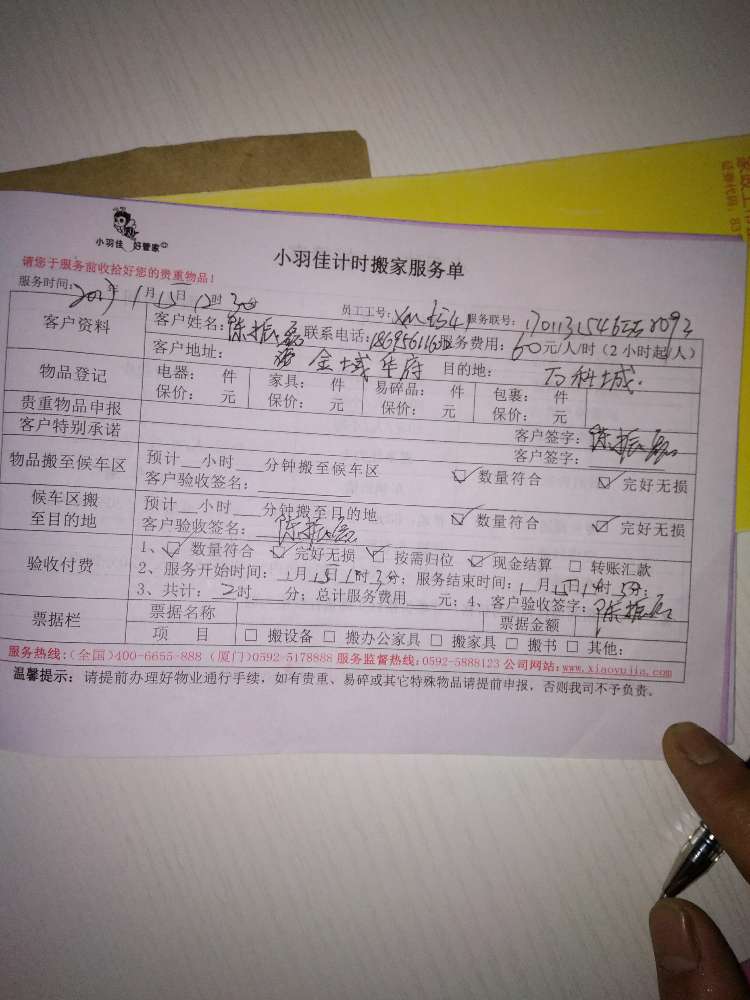 小羽佳 好管家
小羽佳计时搬家服务单
请您于服务前收拾好您的贵重物品!
服务时间: 年1月15日12时30分 员工工号: 服务联号:
客户资料 客户姓名:陈振磊 联系电话: 服务费用:60元/人/时(2小时起/人)
客户地址: 金域华府 目的地: 万科城
物品登记 电器: 件 家具: 件 易碎品: 件 包裹: 件
保价: 元 保价: 元 保价: 元 保价: 元
贵重物品申报 客户签字:陈振磊
客户特别承诺 客户签字:
物品搬至候车区 预计__小时__分钟搬至候车区 ☑数量符合 ☑完好无损
客户验收签名:
候车区搬至目的地 预计__小时__分钟搬至目的地 ☑数量符合 ☑完好无损
客户验收签名:陈振磊
验收付费 1、☑数量符合 ☑完好无损 ☑按需归位 ☑现金结算 □转账汇款
2、服务开始时间:1月15日 时 分;服务结束时间:1月15日 时 分;
3、共计:2时__分;总计服务费用__元;4、客户验收签字:陈振磊
票据栏 票据名称 票据金额
项 目 □搬设备 □搬办公家具 □搬家具 □搬书 □其他:
服务热线:(全国)400-6655-888 (厦门)0592-5178888 服务监督热线:0592-5888123 公司网站:www.xiaoyujia.com
温馨提示:请提前办理好物业通行手续,如有贵重、易碎或其它特殊物品请提前申报,否则我司不予负责。